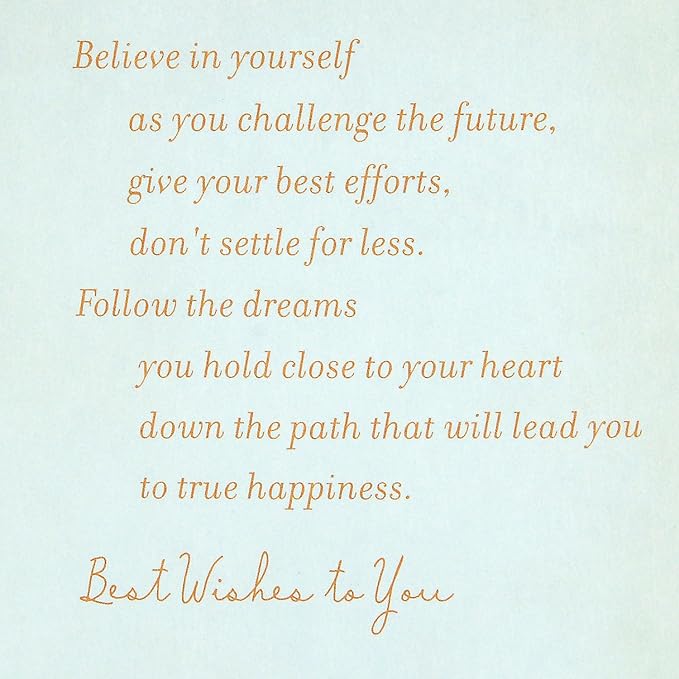 Believe in yourself
as you challenge the future,
give your best efforts,
don't settle for less.
Follow the dreams
you hold close to your heart
down the path that will lead you
to true happiness.
Best Wishes to You